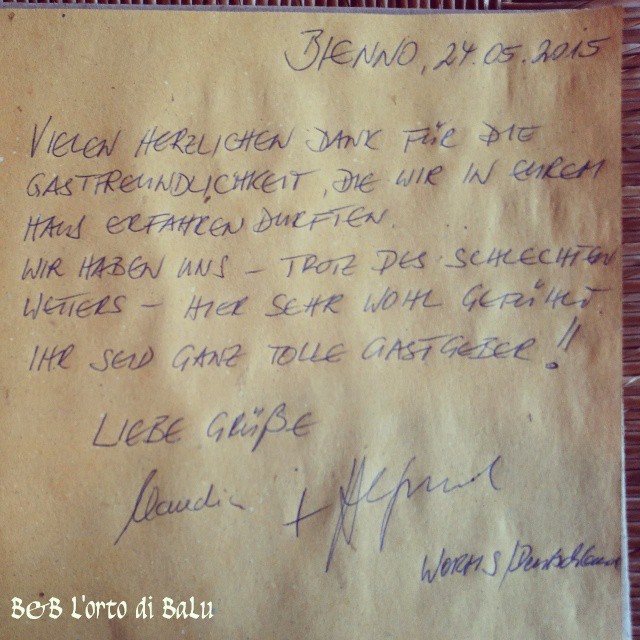 BIENNO, 24.05.2015
VIELEN HERZLICHEN DANK FÜR DIE
GASTFREUNDLICHKEIT, DIE WIR IN EUREM
HAUS ERFAHREN DURFTEN.
WIR HABEN UNS – TROTZ DES SCHLECHTEN
WETTERS – HIER SEHR WOHL GEFÜHLT.
IHR SEID GANZ TOLLE GASTGEBER!!
LIEBE GRÜßE
Claudia +
WORMS/Deutschland
B&B L'orto di BaLu